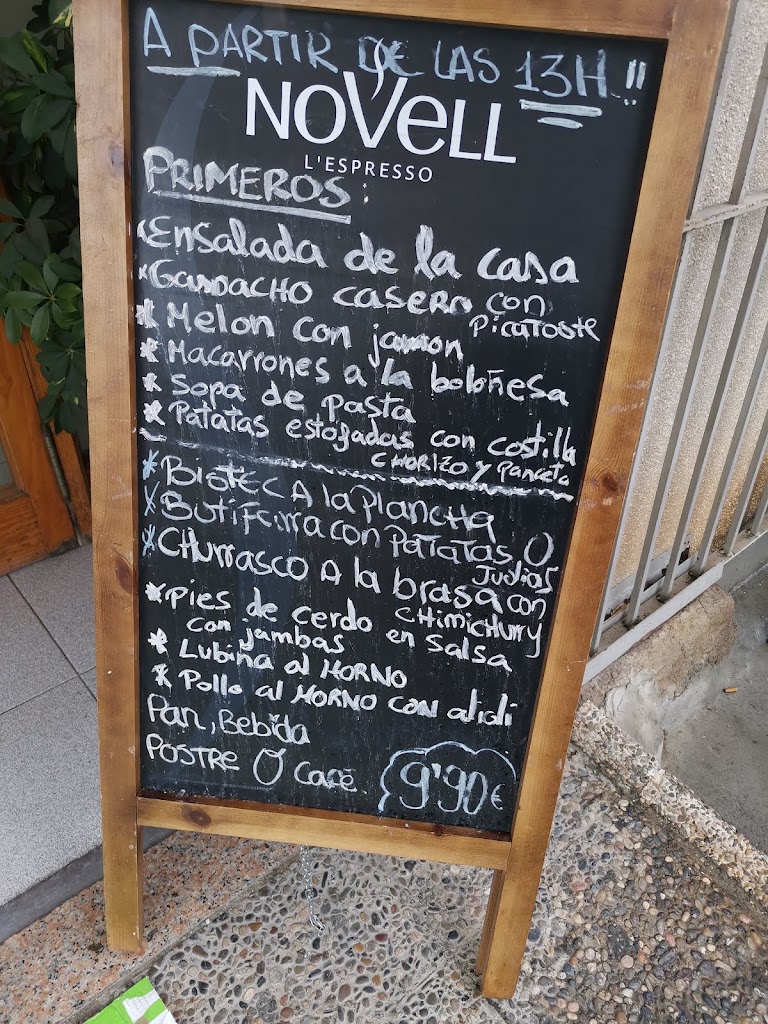 A PARTIR DE LAS 13H!!
NOVELL
L'ESPRESSO
PRIMEROS:
Ensalada de la casa
* GASPACHO CASERO CON
PICATOSTE
* Melon con jamon
* Macarrones a la boloñesa
* Sopa de pasta
* Patatas estofadas con costilla
CHORIZO y Panceta
* BISTEC A la Plancha
* Butifarra con PATATAS O
Judias
* CHURRASCO A la brasa con
CHIMICHURRY
* pies de cerdo en salsa
con jambas
* Lubina al HORNO
* Pollo al HORNO CON alioli
Pan, Bebida
POSTRE O Café
9'90€